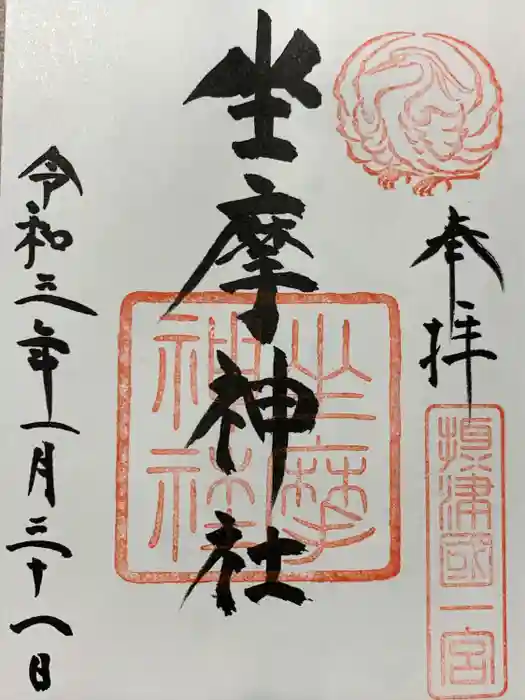 奉拝
摂津國一宮
坐摩神社
坐摩
神社
令和三年一月三十一日